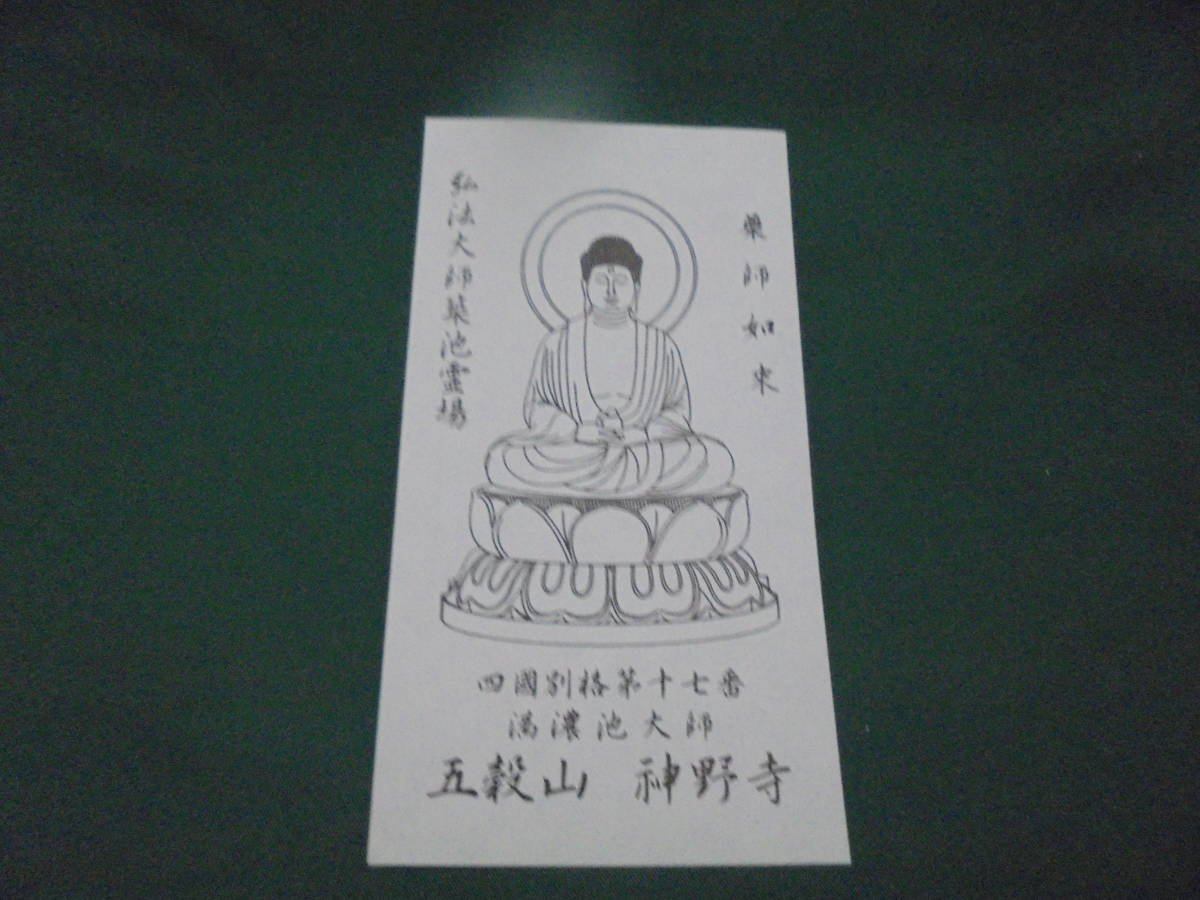 薬師如来
弘法大師築池霊場
四國別格第十七番
満濃池大師
五穀山 神野寺